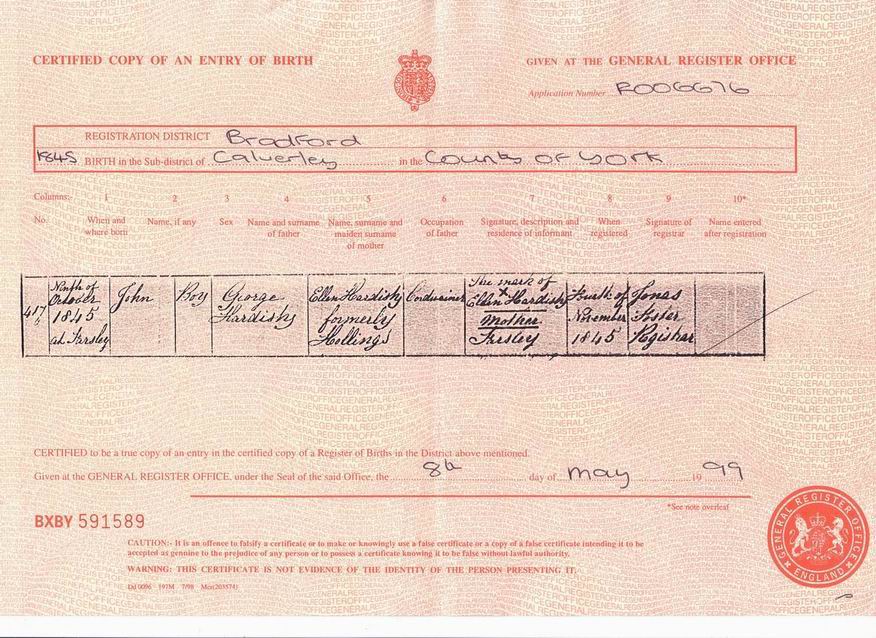 CERTIFIED COPY OF AN ENTRY OF BIRTH
GIVEN AT THE GENERAL REGISTER OFFICE
Application Number R006676
REGISTRATION DISTRICT Bradford
1845 BIRTH in the Sub-district of Calverley in the County of York
Columns:- 1 2 3 4 5 6 7 8 9 10*
No. When and where born Name, if any Sex Name and surname of father Name, surname and maiden surname of mother Occupation of father Signature, description and residence of informant When registered Signature of registrar Name entered after registration
417 Ninth of October 1845 at Farsley John Boy George Hardisty Ellen Hardisty formerly Hollings Cordwainer The mark of X Ellen Hardisty Mother Farsley Fourth of November 1845 Jonas Registrar
CERTIFIED to be a true copy of an entry in the certified copy of a Register of Births in the District above mentioned.
Given at the GENERAL REGISTER OFFICE, under the Seal of the said Office, the 8th day of May 1999
*See note overleaf
BXBY 591589
CAUTION:- It is an offence to falsify a certificate or to make or knowingly use a false certificate or a copy of a false certificate intending it to be
accepted as genuine to the prejudice of any person or to possess a certificate knowing it to be false without lawful authority.
WARNING: THIS CERTIFICATE IS NOT EVIDENCE OF THE IDENTITY OF THE PERSON PRESENTING IT.
GENERAL REGISTER OFFICE
ENGLAND